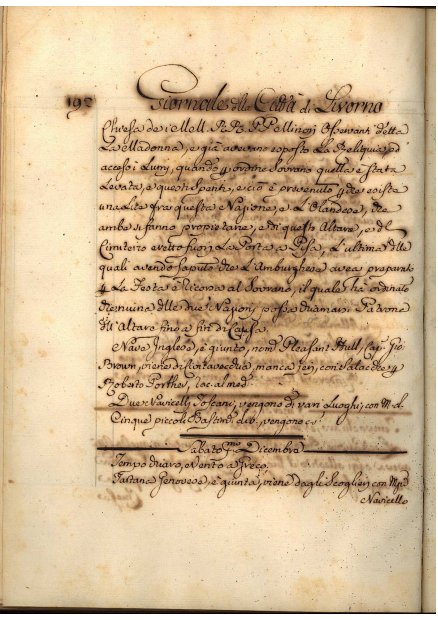 192 Giornale della Città di Livorno
Chiesa de i Mell. R. R. P. P. Osservanti d'etta
La Madonna, e già avevano esposto La Reliquia, ed
accesi i Lumi, quando ordine Sovrano quella è stata
Levata, e questi spenti, e ciò è provenuto esiste
una Lite fra questa Nazione, e L'Olandese, che
ambe si fanno proprietarie, e di questo Altare, e del
Cimiterio eretto fuori La Porta a Pisa, L'ultima delle
quali avendo saputo che L'Amburghese avea preparato
La Festa è Ricorsa al Sovrano, il quale ha ordinato
che niuna delle due Nazioni possa chiamarsi Patrona
dell'Altare fino a fin di Causa.
Nave Inglese, è giunto, nom. Pleasant Hull, Cap. Gio.
Brown, viene di manca con Salacche
Roberto Porther,
Due Navicelli Toscani, vengono di vari Luoghi, con M.
Cinque piccoli Bastimti. vengono
Sabato Dicembre
Tempo chiaro, e Vento a Greco.
Tartana Genovese è giunta, viene dagli Scoglieti, con
Navicello